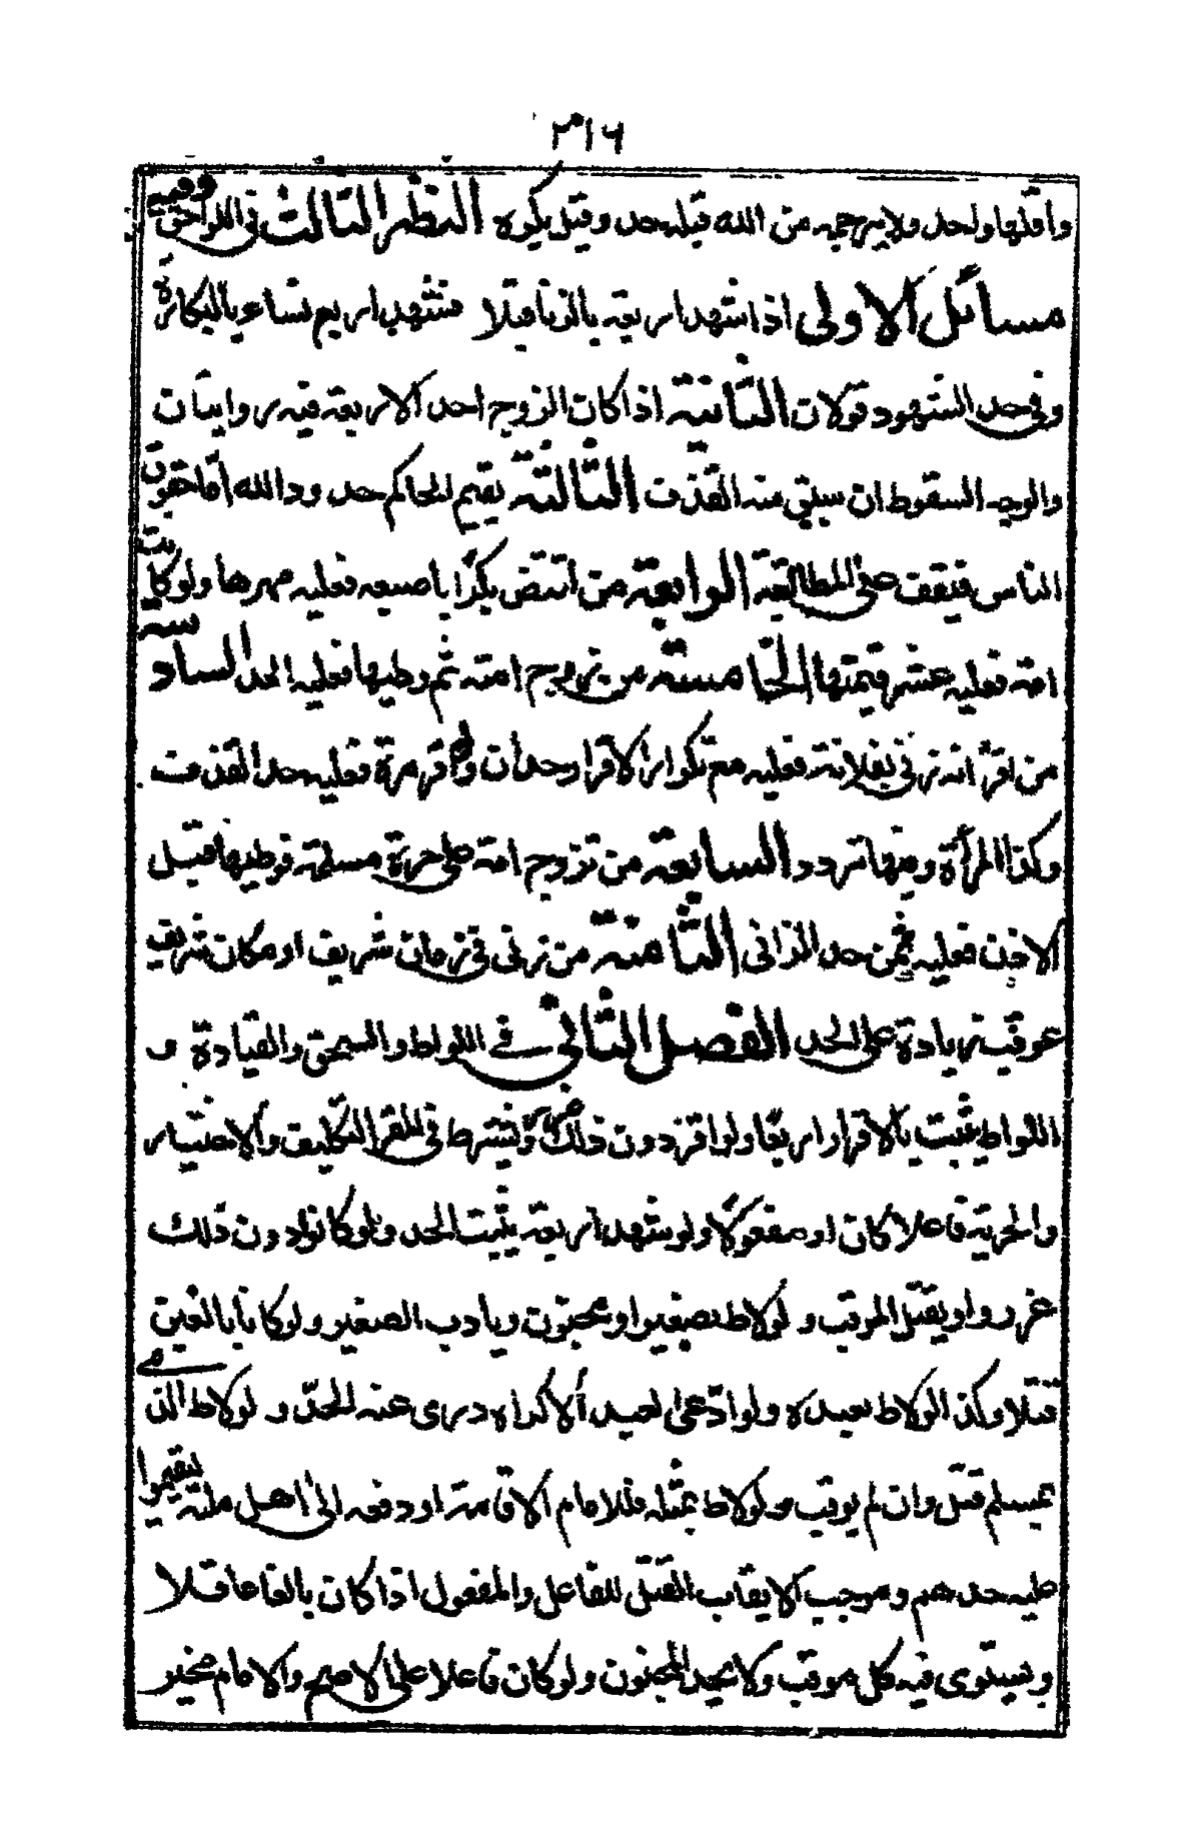 ٣١٦
واقلها واحد ولا يرجمه من الله قبله حد وقيل يكره النظر الثالث في اللواحق وفيه
مسائل الاولى اذا شهد اربعة بالزنا قبلا فشهد اربع نساء بالبكارة
وفي حد الشهود قولان الثانية اذا كان الزوج احد الاربعة فيه روايتان
والوجه السقوط ان سبق منه القذف الثالثة يقيم الحاكم حدود الله اما حقوق
الناس فيقف على المطالبة الرابعة من افتض بكرا باصبعه فعليه مهرها ولو كانت
امة فعليه عشر قيمتها الخامسة من تزوج امة ثم وطيها فعليه الحد السادسة
من اقر انه زنى بفلانة فعليه مع تكرار الاقرار حدان ولو اقر مرة فعليه حد القذف
وكذا المرأة وفيها تردد السابعة من تزوج امة على حرة مسلمة فوطيها قبل
الاذن فعليه ثمن حد الزاني الثامنة من زنى في زمان شريف او مكان شريف
عوقب زيادة على الحد الفصل الثاني في اللواط والسحق والقيادة و
اللواط يثبت بالاقرار اربعا ولو اقر دون ذلك عزر ويشترط في المقر التكليف والاختيار
والحرية فاعلا كان او مفعولا ولو شهد اربعة يثبت الحد ولو كانوا دون ذلك
غرروا ويقتل الموقب ولو لاط بصغير او مجنون ويادب الصغير ولو كانا بالغين
قتلا وكذا لو لاط بعبده ولو ادعى العبد الاكراه درى عنه الحد ولو لاط الذمي
بمسلم قتل وان لم يوقب ولو لاط بمثله فللامام الاقامة او دفعه الى اهل ملته ليقيموا
عليه حدهم وموجب الايقاب القتل للفاعل والمفعول اذا كان بالغا عاقلا
ويستوى فيه كل موقب ولا يحد المجنون ولو كان فاعلا على الاصح والامام مخير